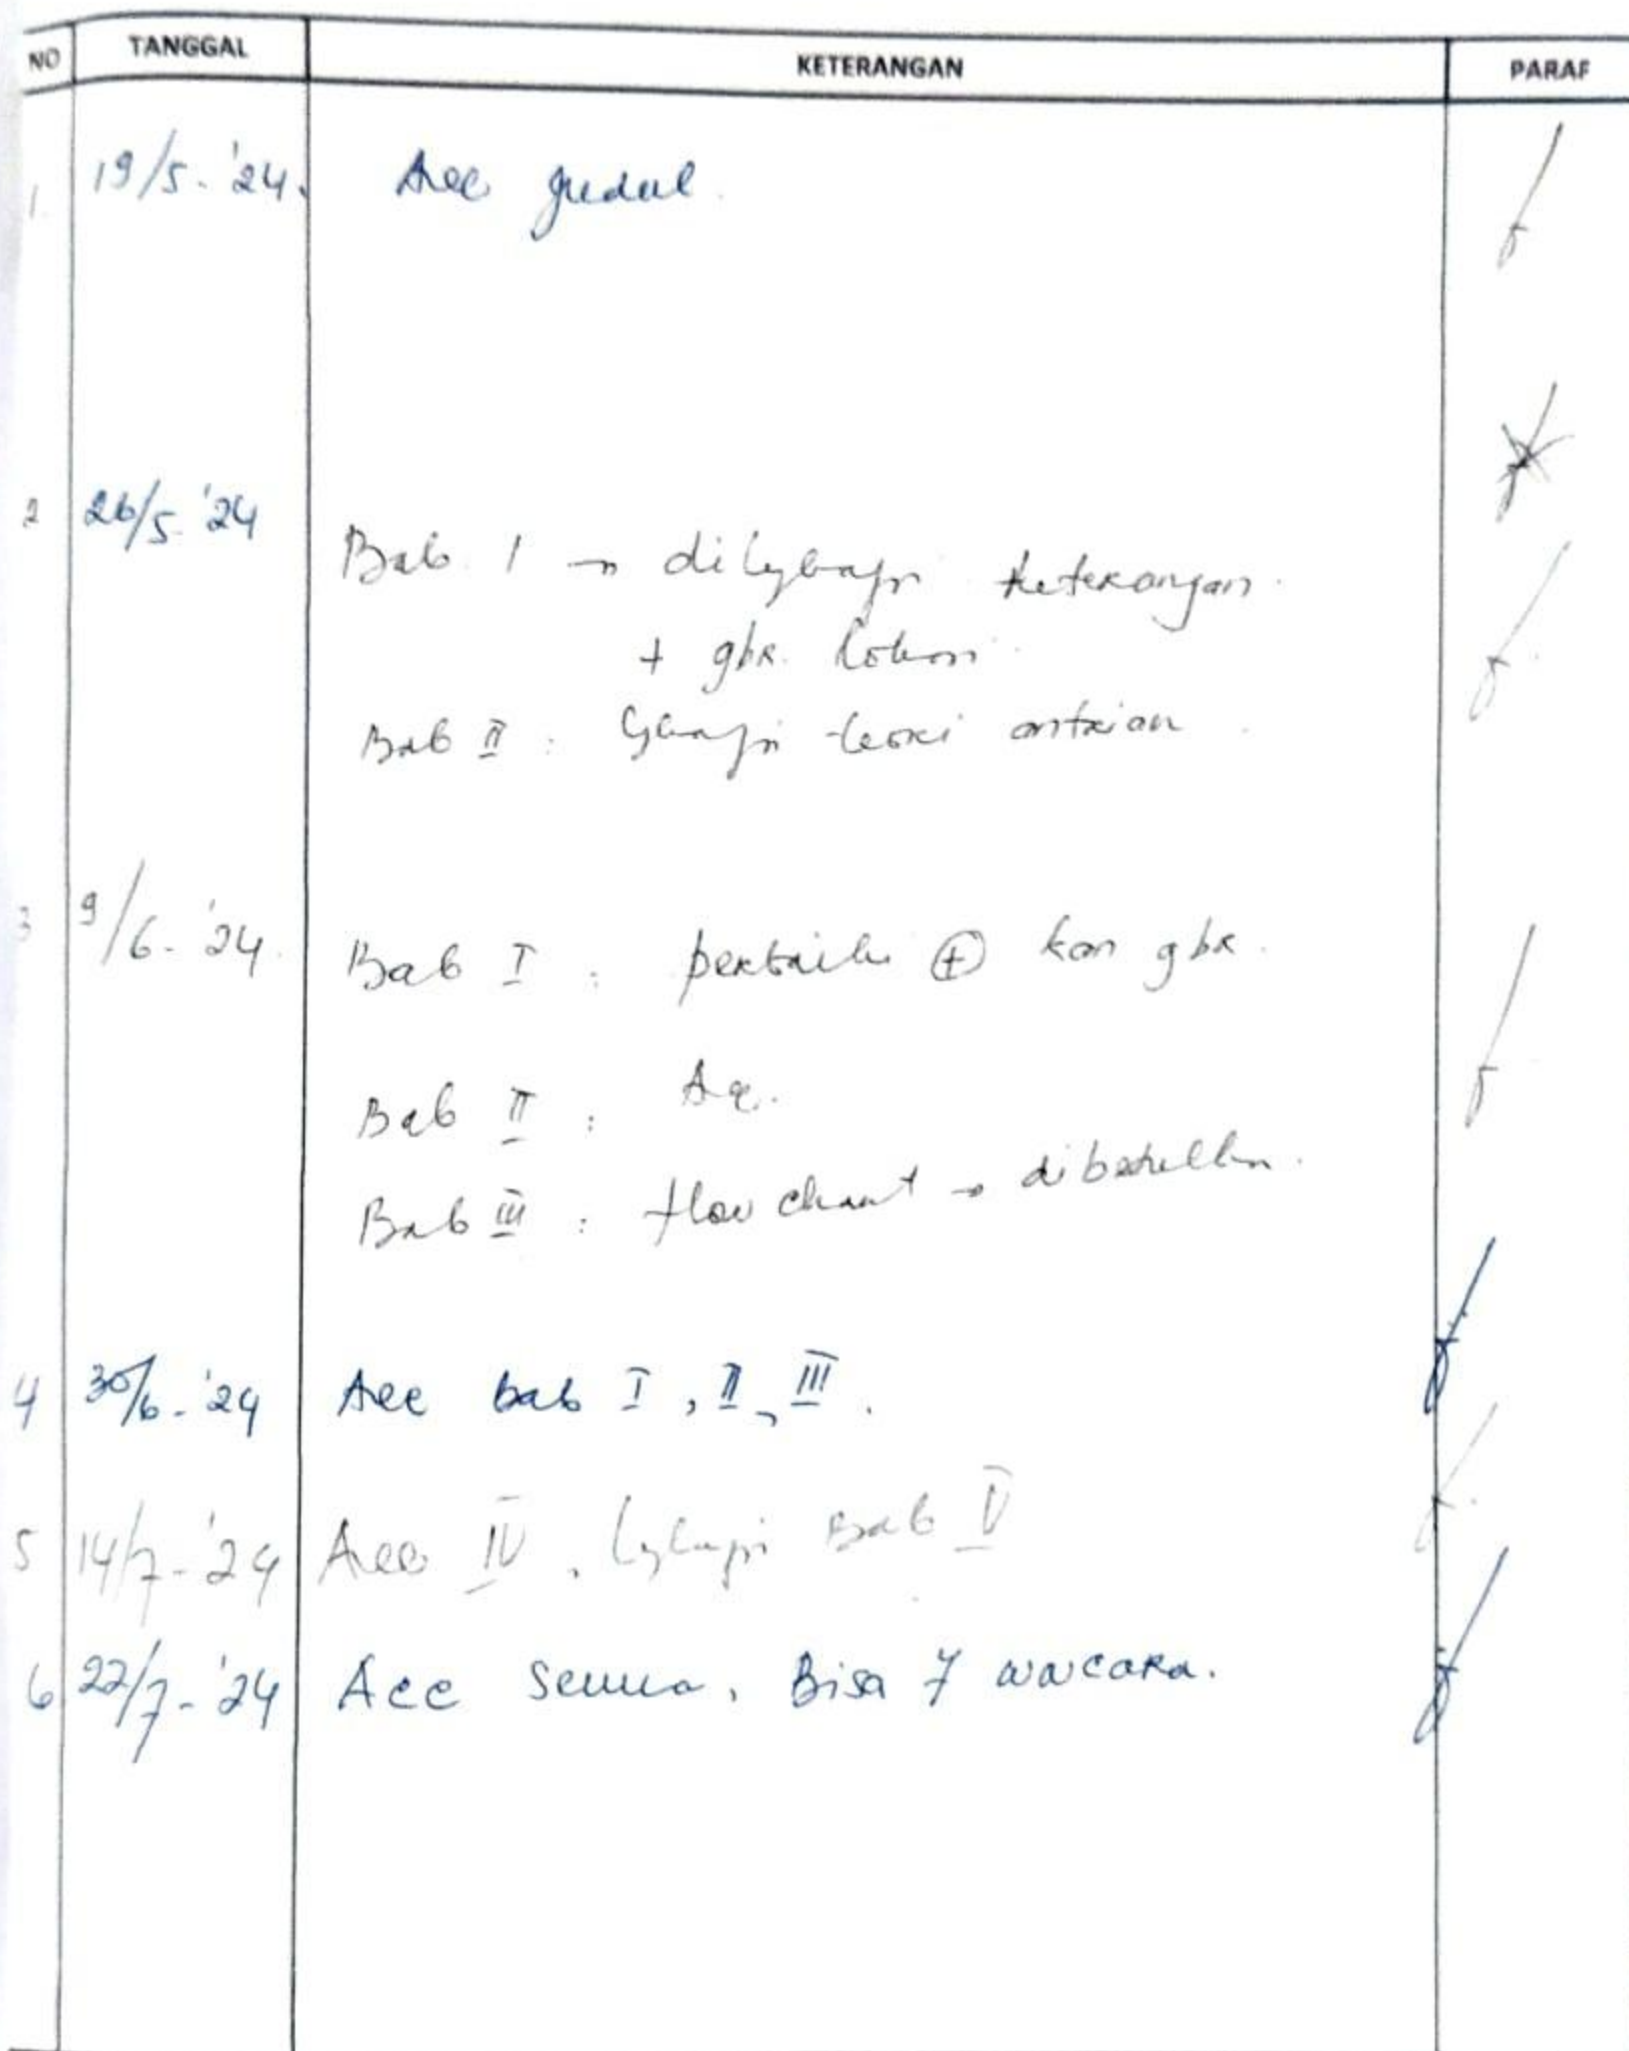 NO TANGGAL KETERANGAN PARAF
1. 19/5-'24. Acc judul.
2 26/5-'24
Bab I → dilengkapi keterangan.
+ gbr. lokasi.
Bab II : lengkapi teori antrian.
3 9/6-'24. Bab I : perbaiki ⊕ kan gbr.
Bab II : Acc.
Bab III : flow chart → dibetulkan.
4 30/6-'24 Acc bab I, II, III.
5 14/7-'24 Acc IV, lengkapi Bab V
6 22/7-'24 Acc semua. Bisa